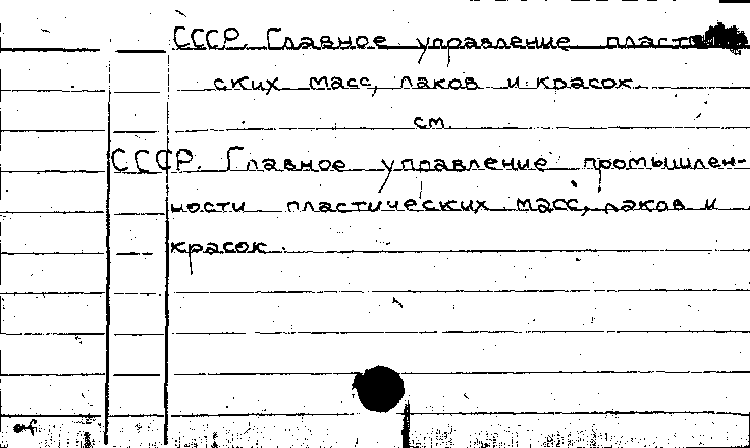 СССР. Главное управление пласти
ских масс, лаков и красок.
см.
СССР. Главное управление промышлен-
ности пластических масс, лаков и
красок.